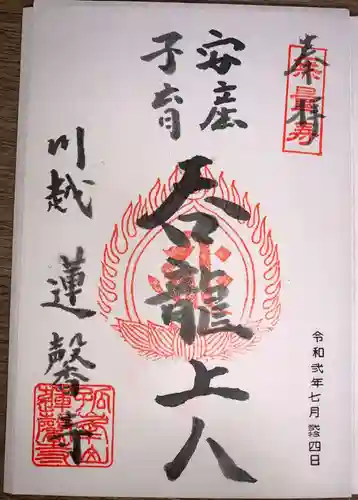 奉拝
安産
子育
呑龍上人
川越 蓮馨寺
令和弐年七月廿四日